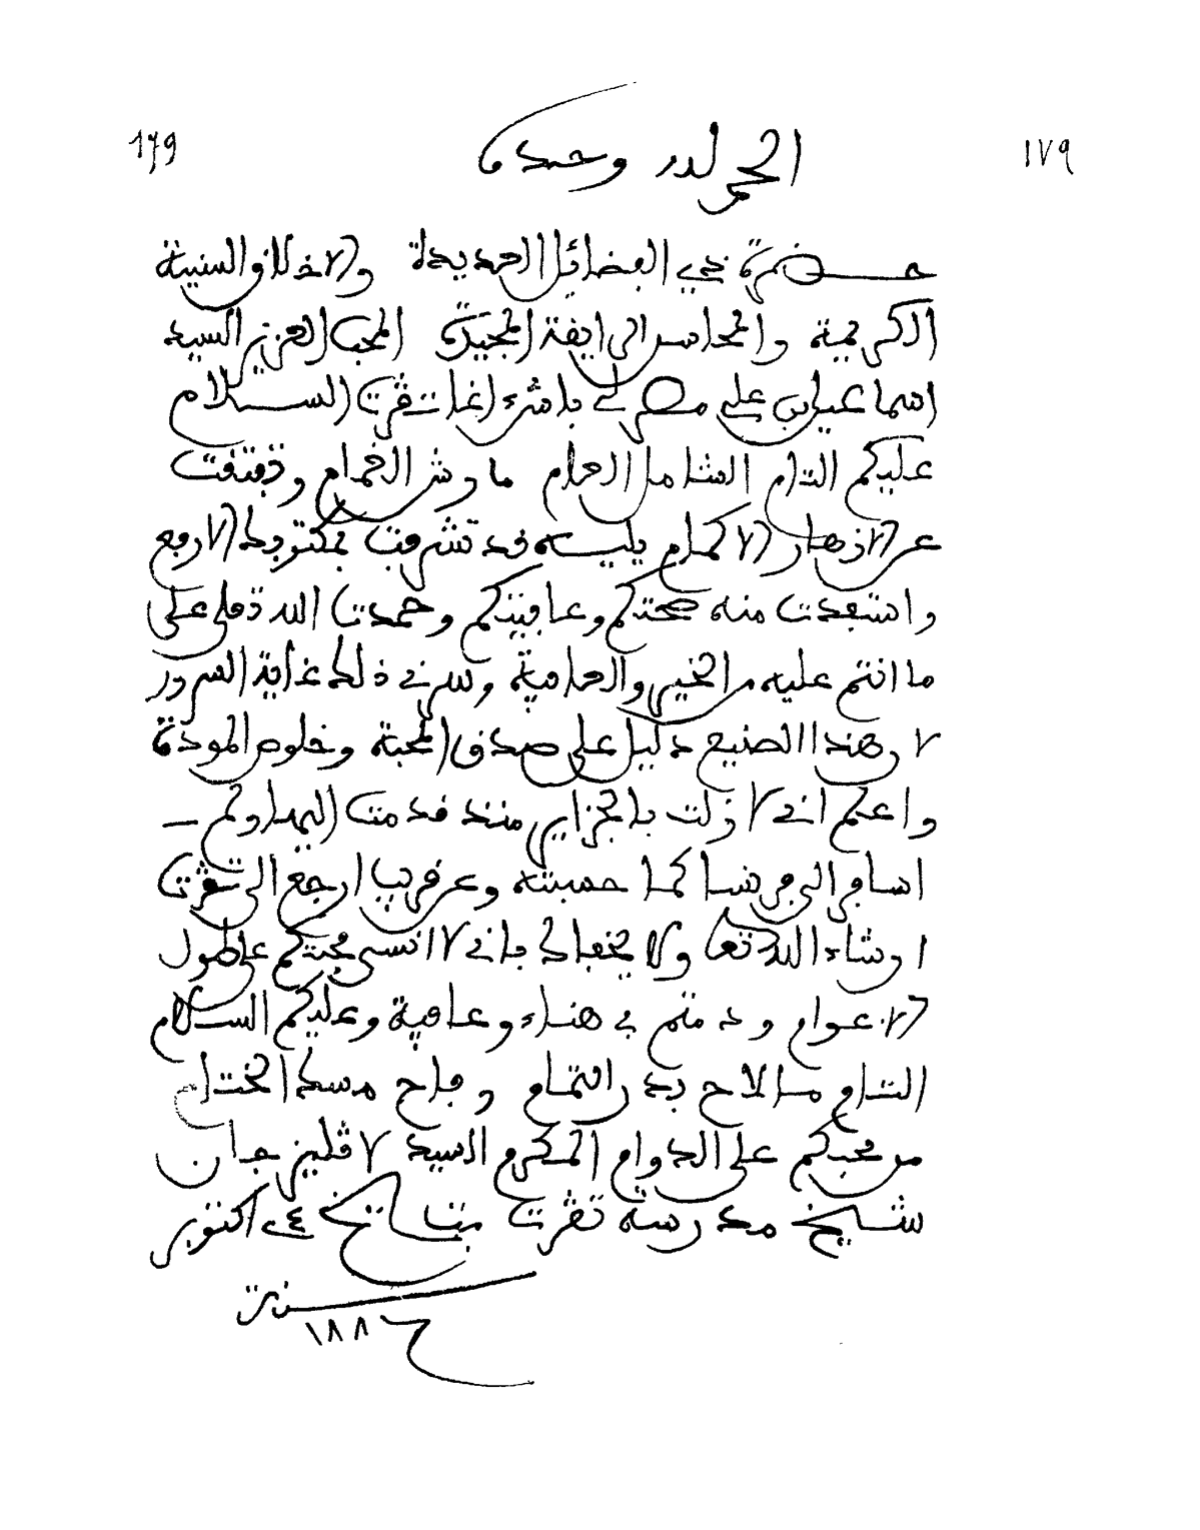 179 ١٧٩
الحمد لله وحده
حضرة ذي الفضائل العديدة والاخلاق السنية
الكريمية والمحاسن الرايقة المجيدة المحب العزيز السيد
اسماعيل بن علي مصرلي باش اغا تقرت السلام
عليكم التام الشامل العام ما رش الغمام وتفتقت
عن الازهار الاكمام يليه قد تشرفت بمكتوبك الارفع
واستفدت منه صحتكم وعافيتكم وحمدت الله تعلى على
ما انتم عليه من الخير والعافية وسرني ذلك غاية السرور
لان هذا الصنيع دليل على صدق المحبة وخلوص المودة
واعلم اني لا زلت بالجزاير منذ قدمت اليها ولم
اسافر الى فرنسا كما حسبته وعن قريب ارجع الى تقرت
ان شاء الله تعا ولا يخفاك باني لا انسى محبتكم على طول
الاعوام ودمتم في هناء وعافية وعليكم السلام
التام ما لاح بدر التمام وفاح مسك الختام
من محبكم على الدوام المكرم السيد لاڢليز جان
شيخ مدرسة تقرت بتاريخ ٢٤ اكتوبر
سنة
١٨٨٦